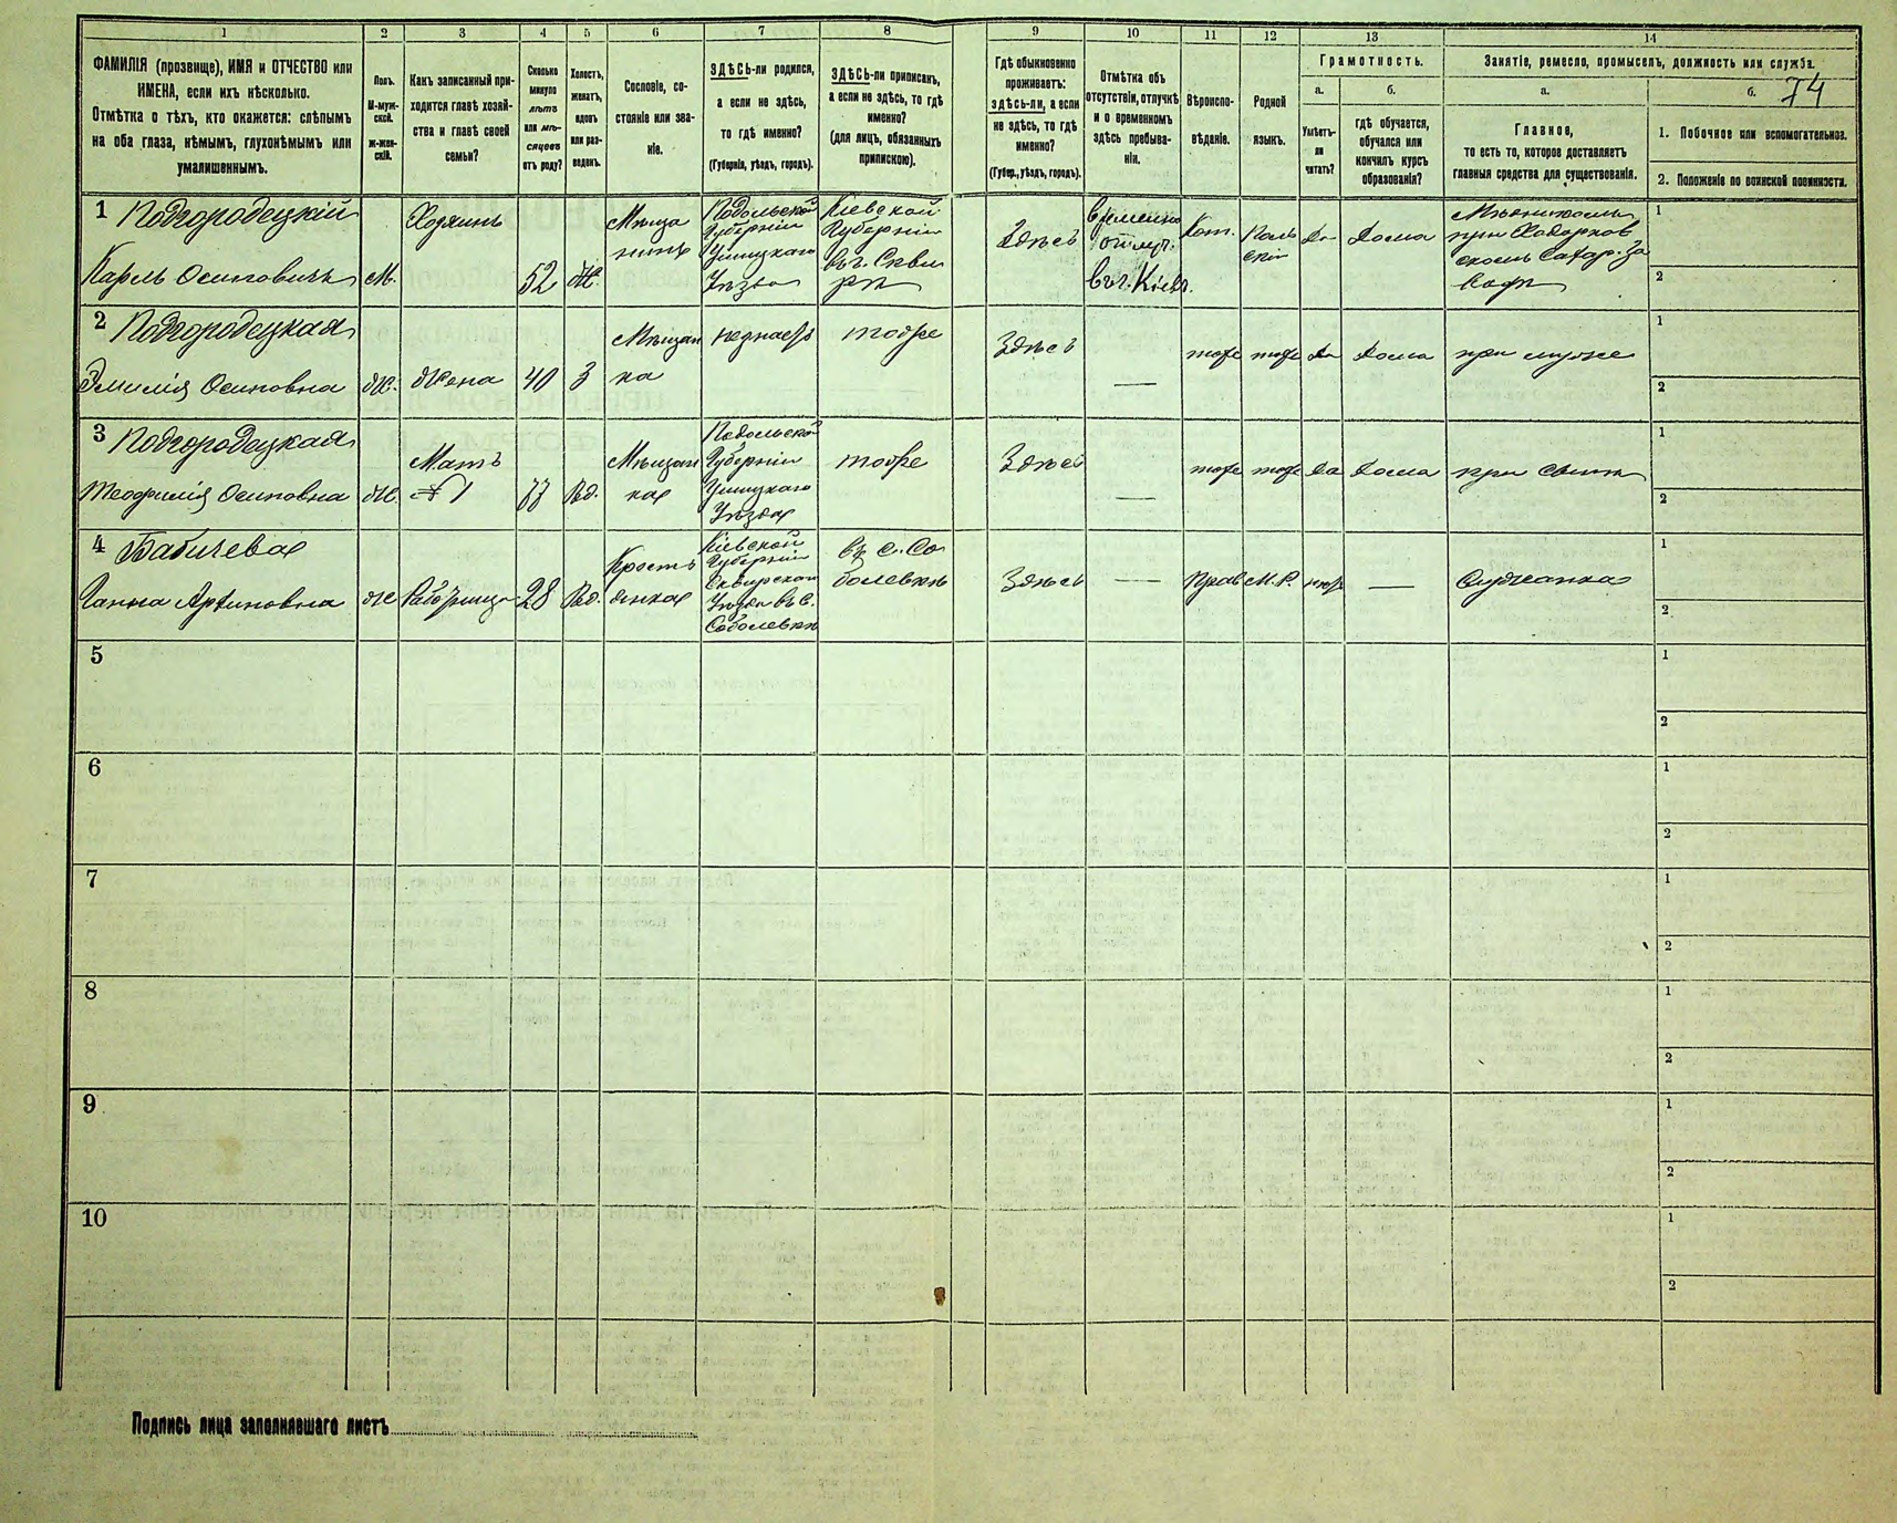 1 2 3 4 5 6 7 8 9 10 11 12 13 14
ФАМИЛІЯ (прозвище), ИМЯ и ОТЧЕСТВО или
ИМЕНА, если ихъ нѣсколько.
Отмѣтка о тѣхъ, кто окажется: слѣпымъ
на оба глаза, нѣмымъ, глухонѣмымъ или
умалишеннымъ.
Полъ.
М-муж-
ской.
ж-жен-
скій.
Какъ записанный при-
ходится главѣ хозяй-
ства и главѣ своей
семьи?
Сколько
минуло
лѣтъ
или мѣ-
сяцевъ
отъ роду?
Холостъ,
женатъ,
вдовъ
или раз-
веденъ.
Сословіе, со-
стояніе или зва-
ніе.
ЗДѢСЬ-ли родился,
а если не здѣсь,
то гдѣ именно?
(Губернія, уѣздъ, городъ).
ЗДѢСЬ-ли приписанъ,
а если не здѣсь, то гдѣ
именно?
(для лицъ, обязанныхъ
припискою).
Гдѣ обыкновенно
проживаетъ:
здѣсь-ли, а если
не здѣсь, то гдѣ
именно?
(Губер., уѣздъ, городъ).
Отмѣтка объ
отсутствіи, отлучкѣ
и о временномъ
здѣсь пребыва-
ніи.
Вѣроиспо-
вѣданіе.
Родной
языкъ.
Грамотность.
а.
Умѣетъ-
ли
читать?
б.
гдѣ обучается,
обучался или
кончилъ курсъ
образованія?
Занятіе, ремесло, промыселъ, должность или служба.
а.
Главное,
то есть то, которое доставляетъ
главныя средства для существованія.
б.
74
1. Побочное или вспомогательное.
2. Положеніе по воинской повинности.
1 Подгородецкій
Карлъ Осиповичъ
М.
Хозяинъ
52
Ж.
Мѣща
нинъ
Подольской
Губерніи
Ушицкаго
Уѣзда
Кіевской
Губерніи
въ г.Скви
рѣ
Здѣсь
Временно
отлуч.
въ г. Кіевъ.
Кат.
Поль
скій
Да
Дома
Механикомъ
при Ходорков
скомъ Сахар. За
водѣ
1
2
2 Подгородецкая
Эмилія Осиповна
Ж.
Жена
40
З
Мѣщан
ка
тоже
Здѣсь
—
тоже
тоже
Да
Дома
при мужѣ
1
2
3 Подгородецкая
Теофилія Осиповна
Ж.
Мать
№ 1
77
Вд.
Мѣщан
ка
Подольской
Губерніи
Ушицкаго
Уѣзда
тоже
Здѣсь
—
тоже
тоже
Да
Дома
при сынѣ
1
2
4 Бабичева
Ганна
Ж
Работница
28
Вд.
Кресть
янка
Кіевской
Губерніи
Сквирскаго
Уѣзда въ с.
Соболевкѣ
въ с. Со
болевкѣ
Здѣсь
—
Прав
М.Р.
нѣтъ
—
Служанка
1
2
5
1
2
6
1
2
7
1
2
8
1
2
9
1
2
10
1
2
Подпись лица заполнявшаго листъ